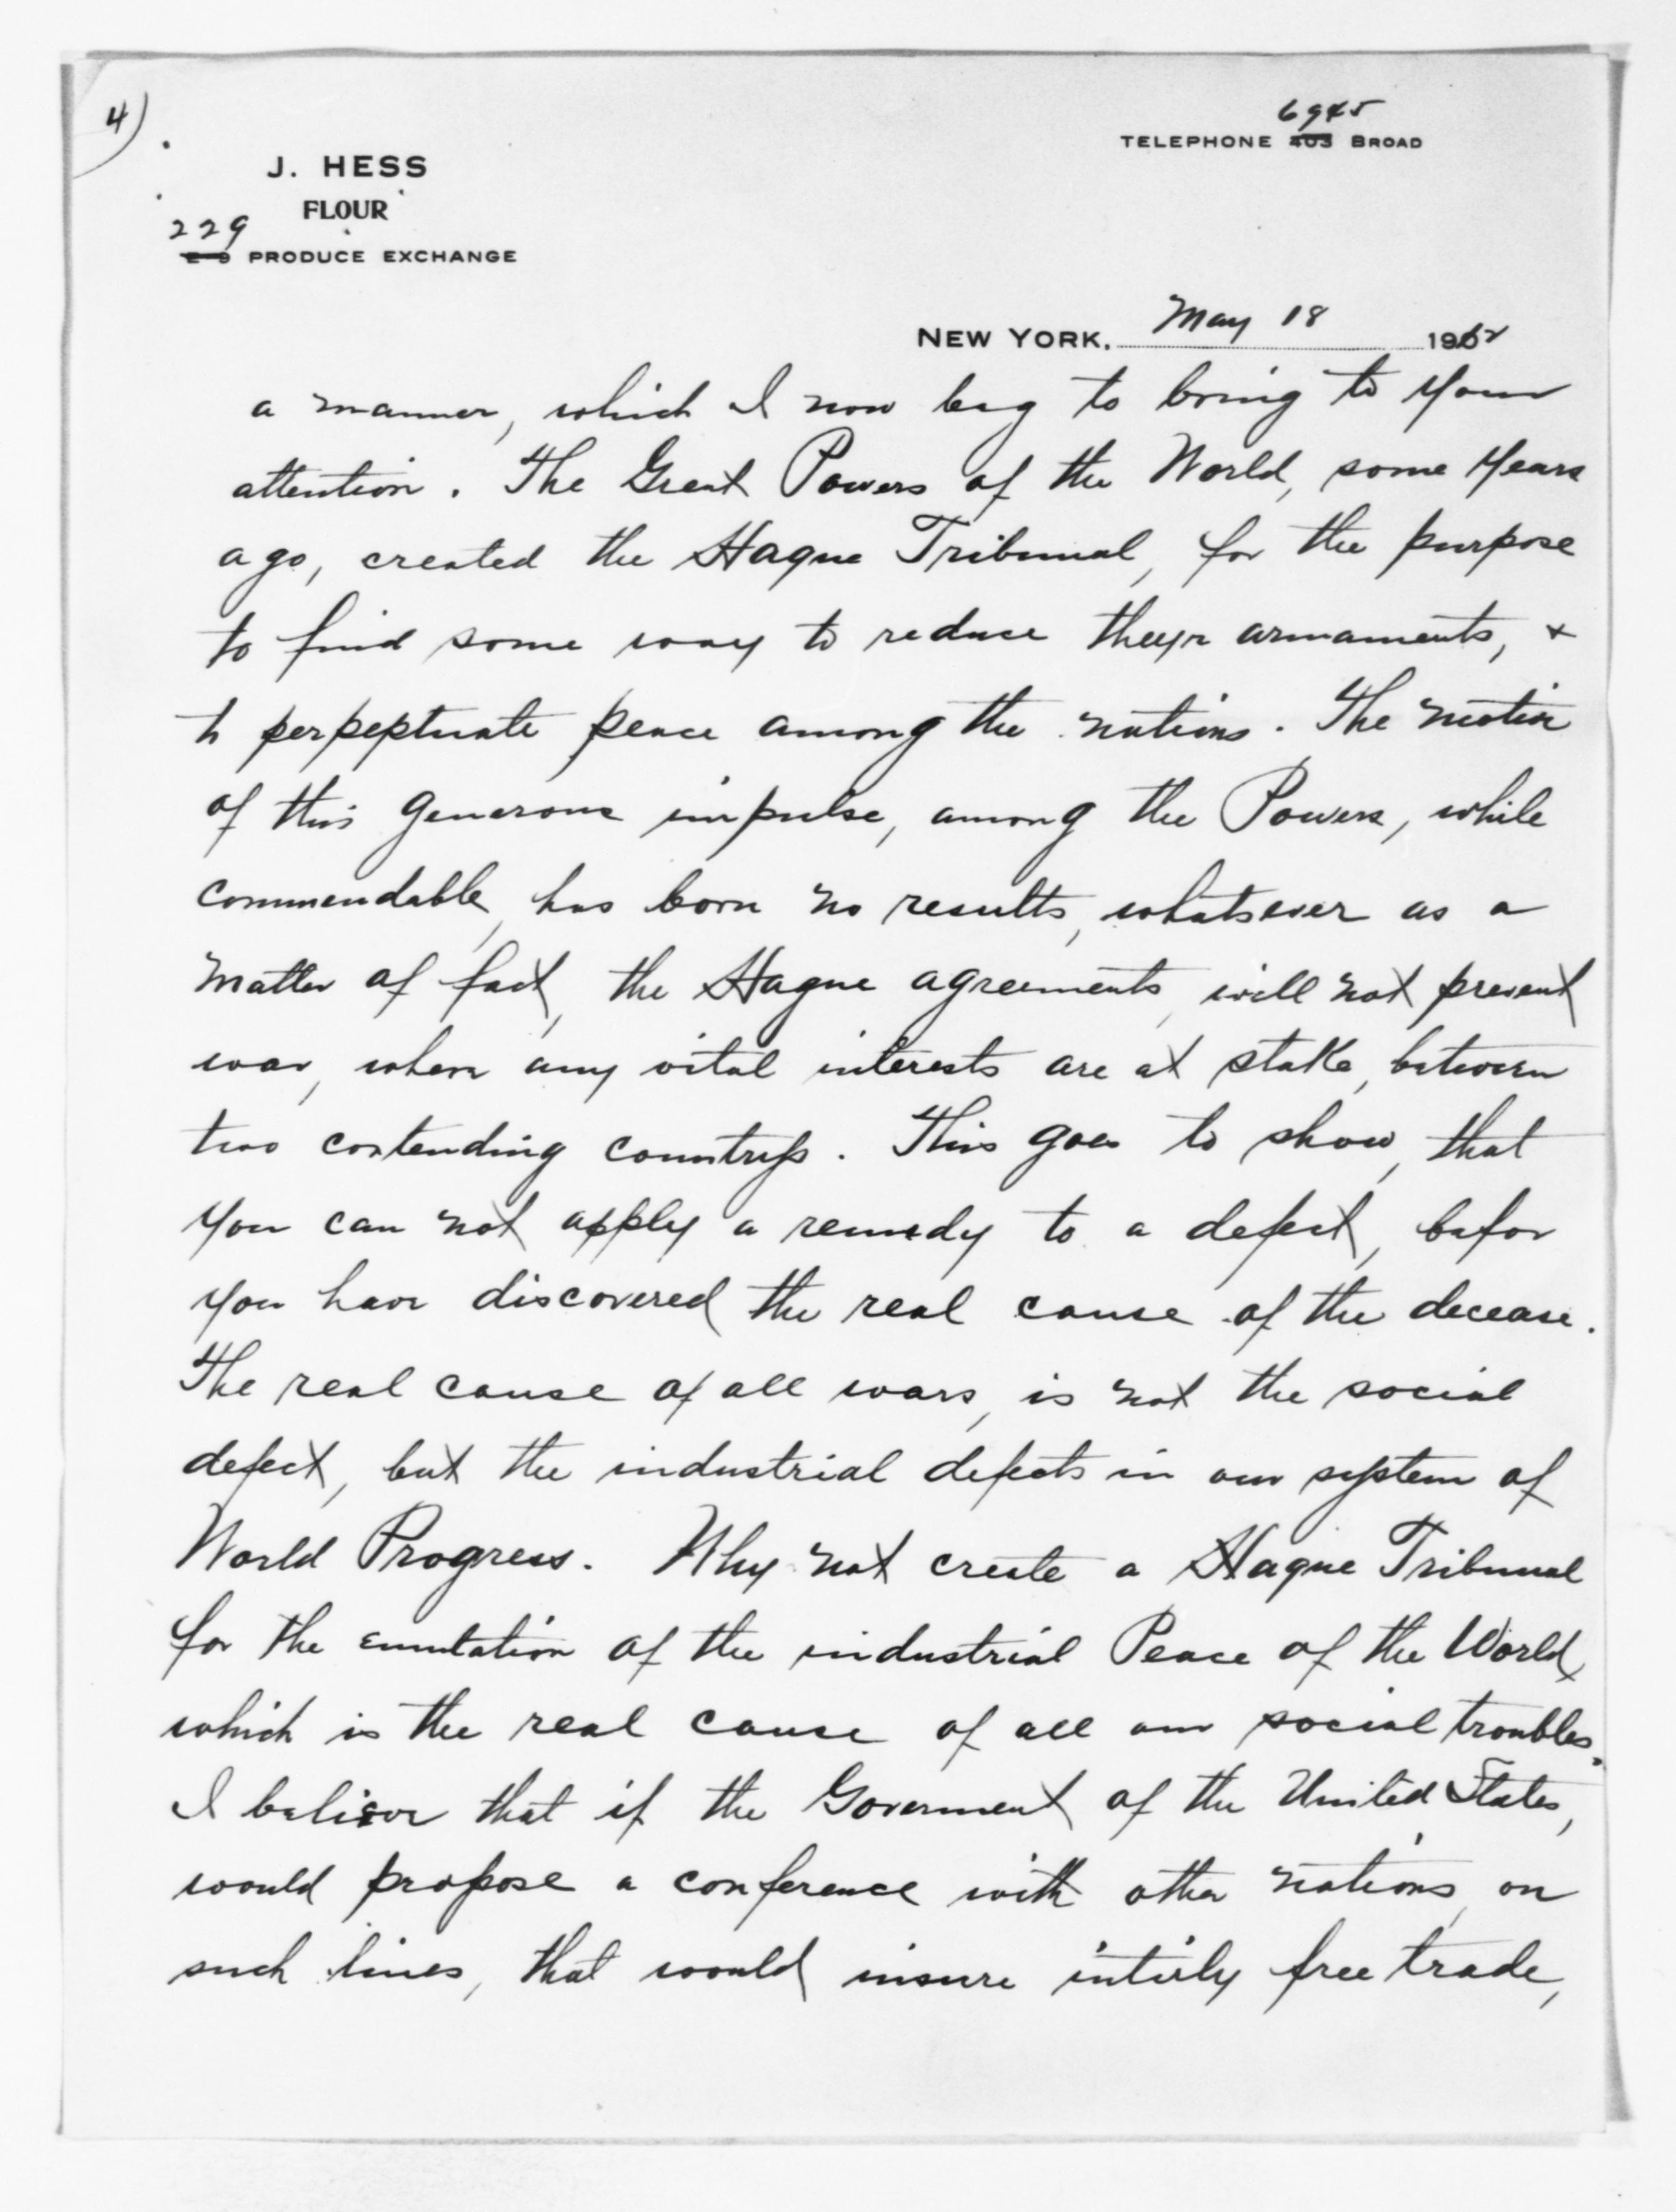 4)
6945
TELEPHONE 403 BROAD
J. HESS
FLOUR
229
E 9 PRODUCE EXCHANGE
NEW YORK, May 18 1912
a manner, which I now beg to bring to your
attention. The Great Powers of the World, some years
ago, created the Hague Tribunal, for the purpose
to find some way to reduce theyr armaments, &
to perpeptuate peace among the nations. The motive
of this generous impulse, among the Powers, while
commendable, has born no results, whatsever as a
matter of fact, the Hague agreements, will not prevent
war, when any vital interests are at stake, between
two contending countrys. This goes to show, that
you can not apply a remedy to a defect, befor
you have discovered the real cause of the decease.
The real cause of all wars, is not the social
defect, but the industrial defects in our system of
World Progress. Why not create a Hague Tribunal
for the of the industrial Peace of the World,
which is the real cause of all our social troubles.
I believe that if the Goverment of the United States,
would propose a conference with other nations, on
such lines, that would insure intirly free trade,